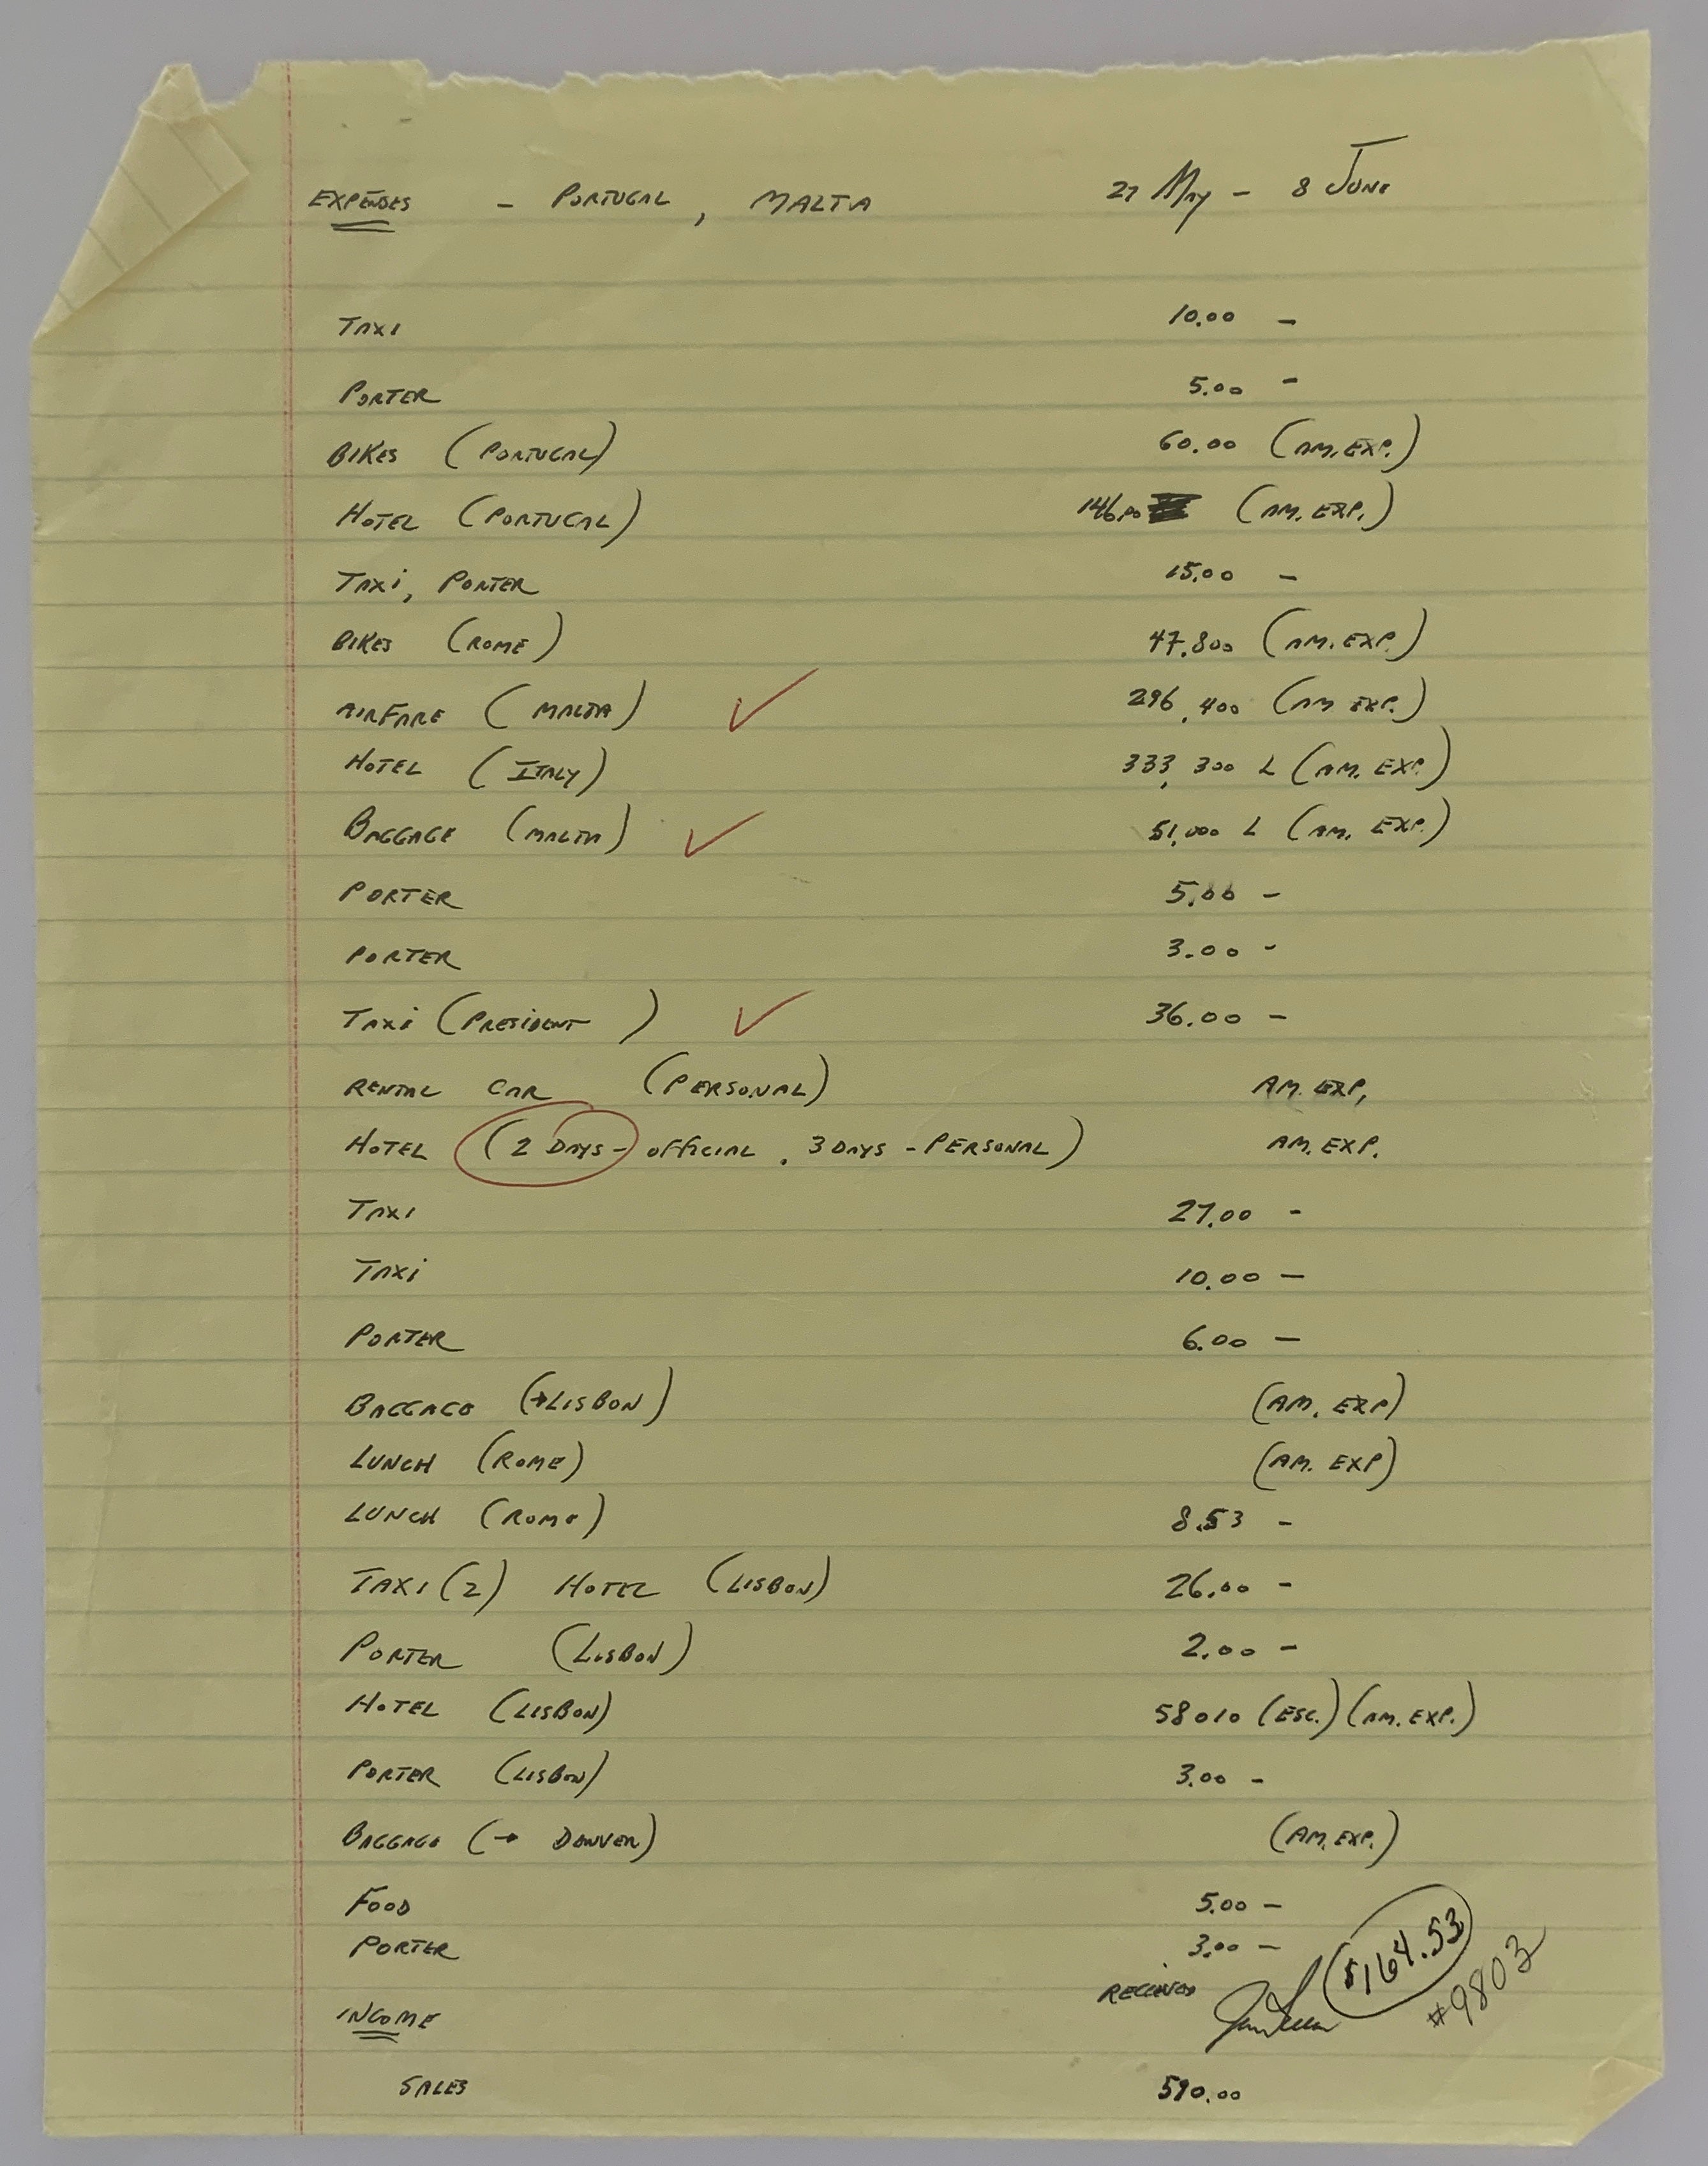 EXPENSES - PORTUGAL, MALTA 27 MAY - 8 JUNE
TAXI 10.00 -
PORTER 5.00 -
BIKES (PORTUGAL) 60.00 (AM. EXP.)
HOTEL (PORTUGAL) 146.00 (AM. EXP.)
TAXI, PORTER 15.00 -
BIKES (ROME) 47.800 (AM. EXP.)
AIRFARE (MALTA) ✓ 296,400 (AM EXP.)
HOTEL (ITALY) 333,300 L (AM. EXP.)
BAGGAGE (MALTA) ✓ 51,000 L (AM. EXP.)
PORTER 5.00 -
PORTER 3.00 -
TAXI (PRESIDENT) ✓ 36.00 -
RENTAL CAR (PERSONAL) AM. EXP.
HOTEL (2 DAYS - OFFICIAL, 3 DAYS - PERSONAL) AM. EXP.
TAXI 27.00 -
TAXI 10.00 -
PORTER 6.00 -
BAGGAGE (→LISBON) (AM. EXP)
LUNCH (ROME) (AM. EXP)
LUNCH (ROME) 8.53 -
TAXI (2) HOTEL (LISBON) 26.00 -
PORTER (LISBON) 2.00 -
HOTEL (LISBON) 58010 (ESC.) (AM. EXP.)
PORTER (LISBON) 3.00 -
BAGGAGE (→ DENVER) (AM. EXP.)
FOOD 5.00 -
PORTER 3.00 -
$164.53
RECEIVED
#9803
INCOME
SALES 590.00